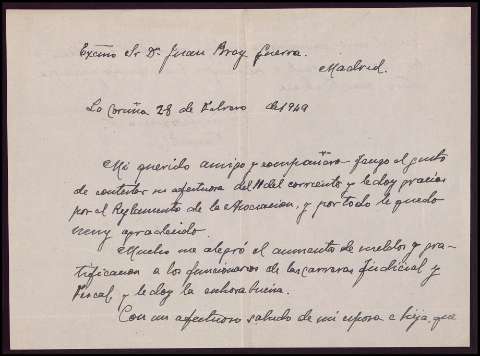 Excmo Sr D. Juan Bray Guerra.
Madrid.
La Coruña 28 de Febrero de 1949
Mi querido amigo y compañero: tengo el gusto
de contestar su afectuosa del 11 del corriente y le doy gracias
por el Reglamento de la Asociacion, y por todo le quedo
muy agradecido.
Mucho me alegró el aumento de sueldos y gra-
tificacion a los funcionarios de las carreras Judicial y
Fiscal, y le doy la enhorabuena.
Con un afectuoso saludo de mi esposa e hija, que